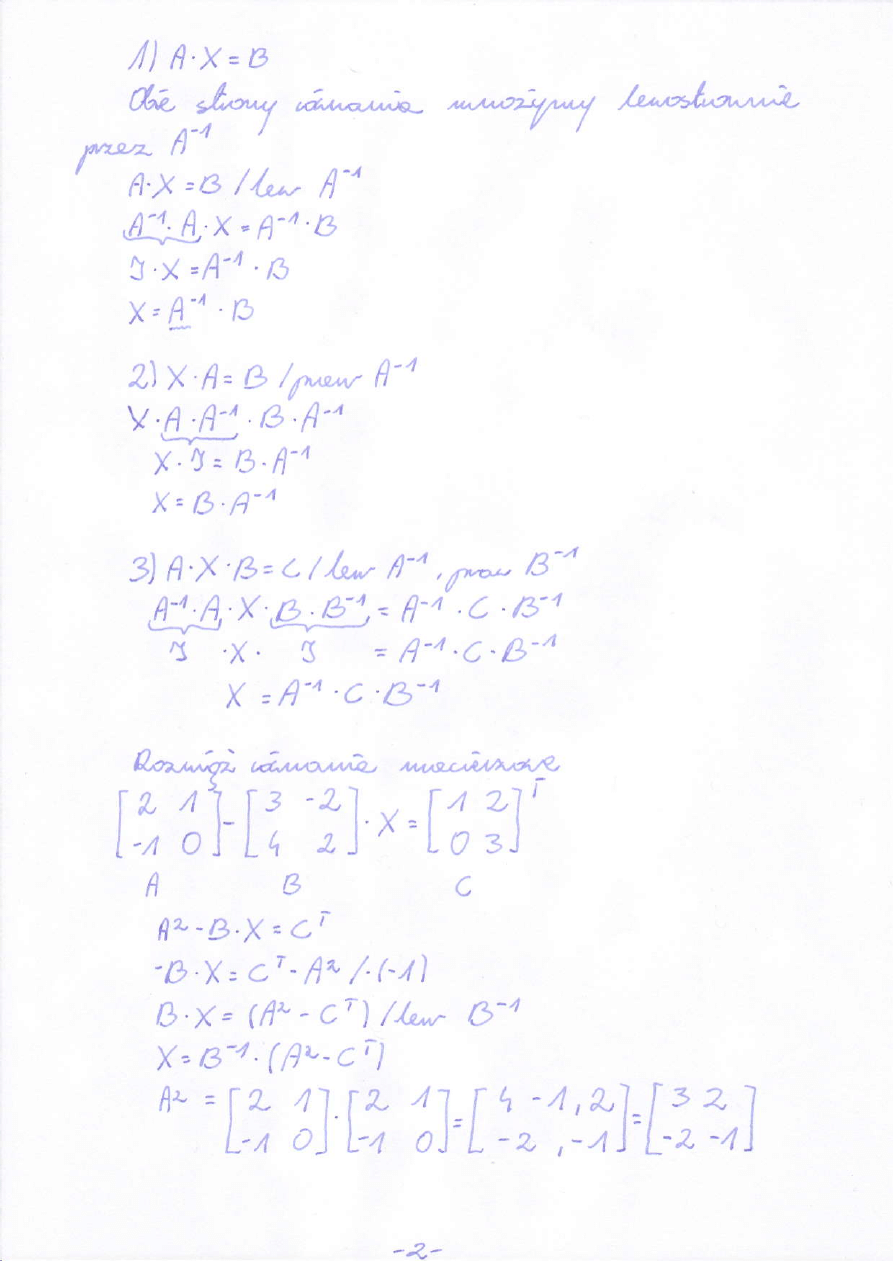 1) A·X=B
Obie strony równania mnożymy lewostronnie
przez A⁻¹
A·X=B / lew A⁻¹
A⁻¹·A·X=A⁻¹·B
J·X=A⁻¹·B
X=A⁻¹·B
2) X·A=B / praw A⁻¹
X·A·A⁻¹·B·A⁻¹
X·J=B·A⁻¹
X=B·A⁻¹
3) A·X·B=C / lew A⁻¹, praw B⁻¹
A⁻¹·A·X·B·B⁻¹=A⁻¹·C·B⁻¹
J ·X· J =A⁻¹·C·B⁻¹
X=A⁻¹·C·B⁻¹
Rozwiąż równanie macierzowe
[2 1; -1 0]² - [3 -2; 4 2]·X=[1 2; 0 3]ᵀ
A B C
A²-B·X=Cᵀ
-B·X=Cᵀ-A² /·(-1)
B·X=(A²-Cᵀ) / lew B⁻¹
X=B⁻¹·(A²-Cᵀ)
A²=[2 1; -1 0]·[2 1; -1 0]=[4-1, 2; -2, -1]=[3 2; -2 -1]
-2-